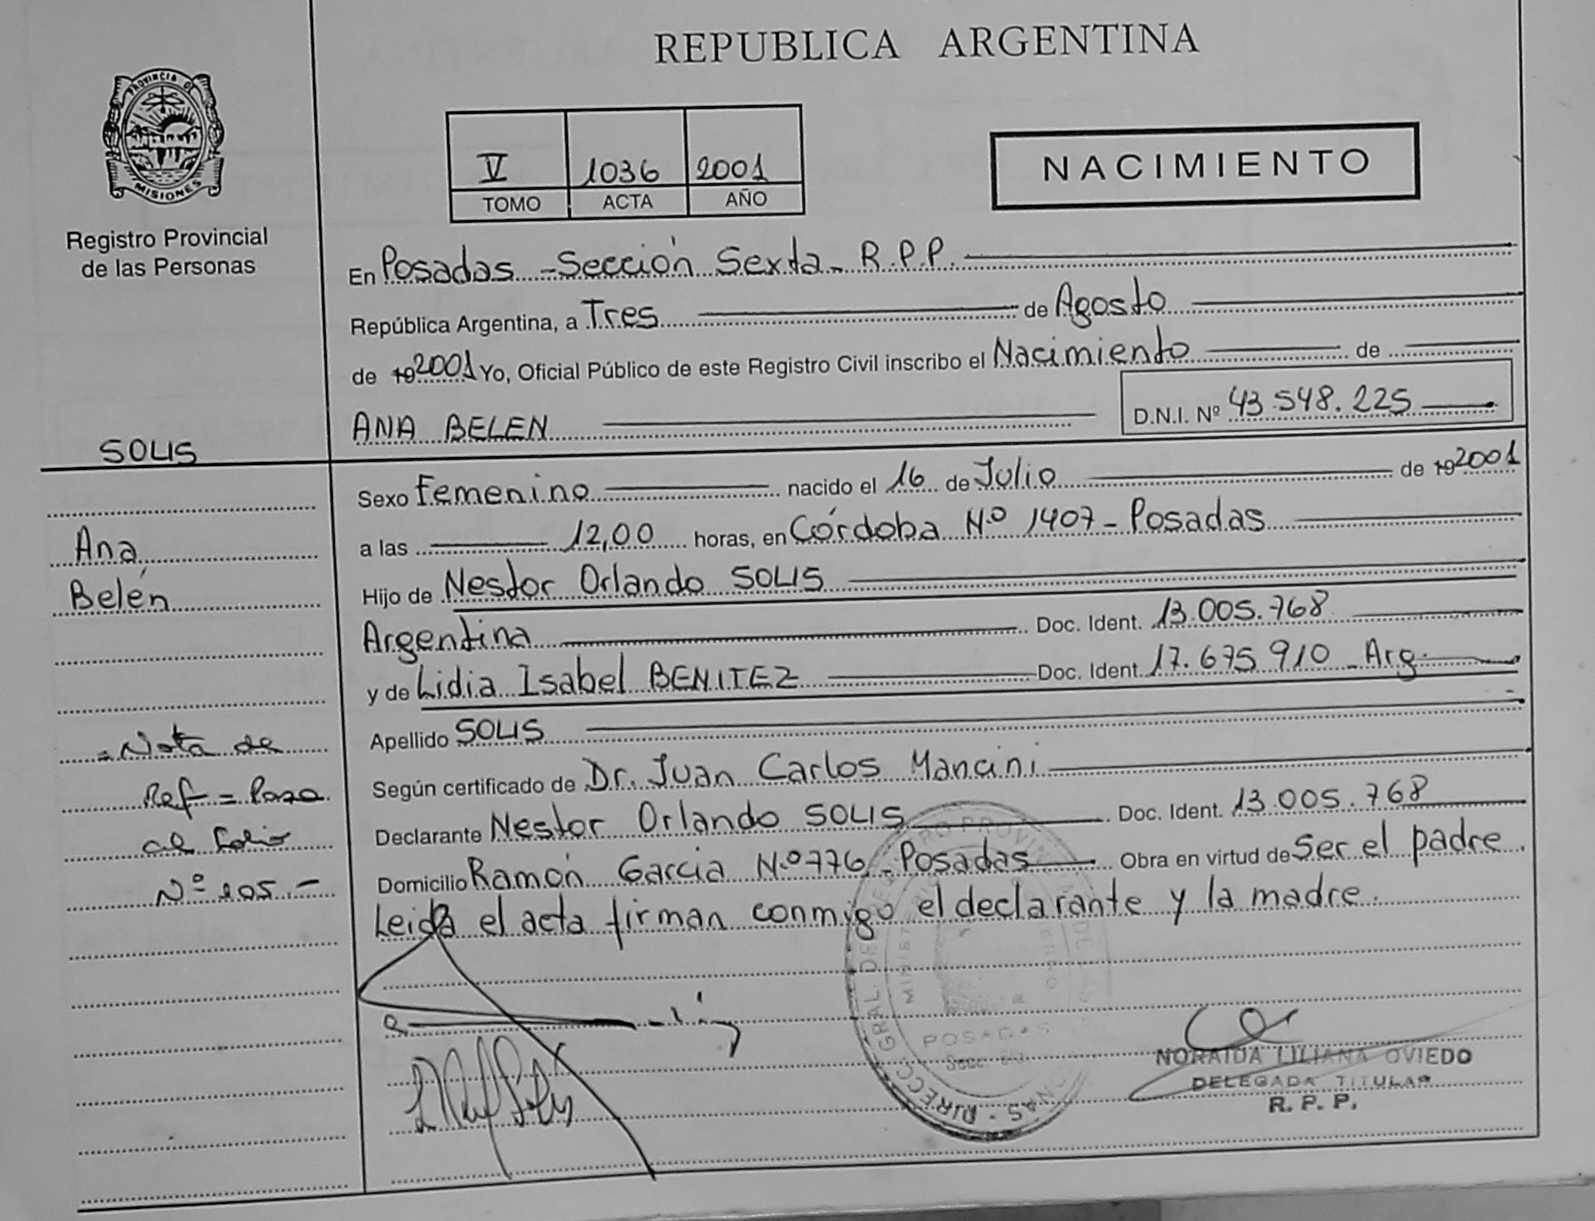 REPUBLICA ARGENTINA
PROVINCIA DE
MISIONES
Registro Provincial
de las Personas
V 1036 2001
TOMO ACTA AÑO
NACIMIENTO
En Posadas - Sección Sexta - R.P.P.
República Argentina, a Tres de Agosto
de 192001 Yo, Oficial Público de este Registro Civil inscribo el Nacimiento de
ANA BELEN D.N.I. Nº 43.548.225
SOLIS
Sexo Femenino nacido el 16 de Julio de 192001
a las 12,00 horas, en Córdoba Nº 1407 - Posadas
Ana
Belén
Hijo de Nestor Orlando SOLIS
Argentina Doc. Ident. 13.005.768
y de Lidia Isabel BENITEZ Doc. Ident. 17.675.910 - Arg.
Apellido SOLIS
Según certificado de Dr. Juan Carlos Mancini
Declarante Nestor Orlando SOLIS Doc. Ident. 13.005.768
Domicilio Ramón Garcia Nº 776 - Posadas Obra en virtud de Ser el padre.
Leida el acta firman conmigo el declarante y la madre.
= Nota de
Ref = Pasa
al folio
Nº 105.-
POSADAS
NORAIDA LILIANA OVIEDO
DELEGADA TITULAR
R. P. P.